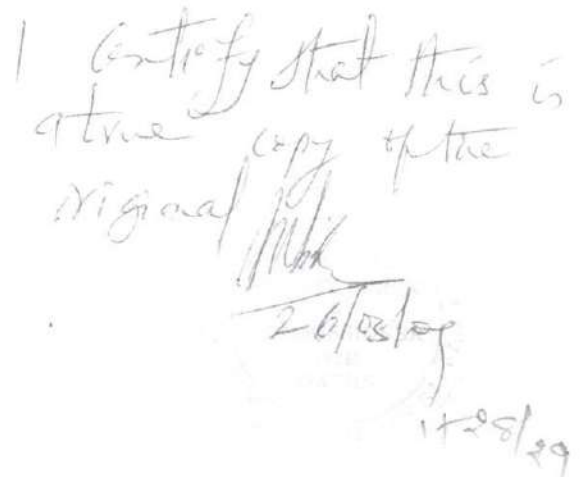 I Certify that this is
a true copy of the
original
26/03/09